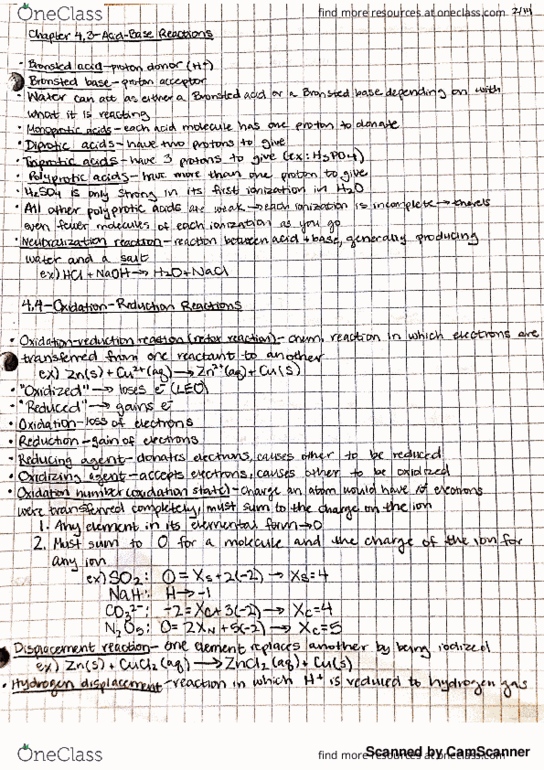 OneClass
find more resources at oneclass.com
2/11
Chapter 4.3-Acid-Base Reactions
• Bronsted acid-proton donor (H⁺)
• Bronsted base-proton acceptor
• Water can act as either a Bronsted acid or a Bronsted base depending on with
what it is reacting
• Monoprotic acids-each acid molecule has one proton to donate
• Diprotic acids-have two protons to give
• Triprotic acids-have 3 protons to give (ex: H₃PO₄)
• Polyprotic acids-have more than one proton to give
• H₂SO₄ is only strong in its first ionization in H₂O
• All other polyprotic acids are weak→each ionization is incomplete→there's
even fewer molecules of each ionization as you go
• Neutralization reaction-reaction between acid + base, generally producing
water and a salt
ex) HCl + NaOH→H₂O+NaCl
4.4-Oxidation-Reduction Reactions
• Oxidation-reduction reaction (redox reaction)-chem. reaction in which electrons are
transferred from one reactant to another
ex) Zn(s) + Cu²⁺(aq)→Zn²⁺(aq)+Cu(s)
• "Oxidized"→loses e⁻ (LEO)
• "Reduced"→gains e⁻
• Oxidation-loss of electrons
• Reduction-gain of electrons
• Reducing agent-donates electrons, causes other to be reduced
• Oxidizing agent-accepts electrons, causes other to be oxidized
• Oxidation number (oxidation state)-charge an atom would have if electrons
were transferred completely, must sum to the charge on the ion
1. Any element in its elemental form→0
2. Must sum to 0 for a molecule and the charge of the ion for
any ion
ex) SO₂: 0=Xs+2(-2)→Xs=4
NaH: H→-1
CO₃²⁻: -2=Xc+3(-2)→Xc=4
N₂O₅: 0=2XN+5(-2)→Xc=5
Displacement reaction-one element replaces another by being iodized
ex) Zn(s)+CuCl₂(aq)→ZnCl₂(aq)+Cu(s)
• Hydrogen displacement-reaction in which H⁺ is reduced to hydrogen gas
OneClass
find more resources at oneclass.com
Scanned by CamScanner